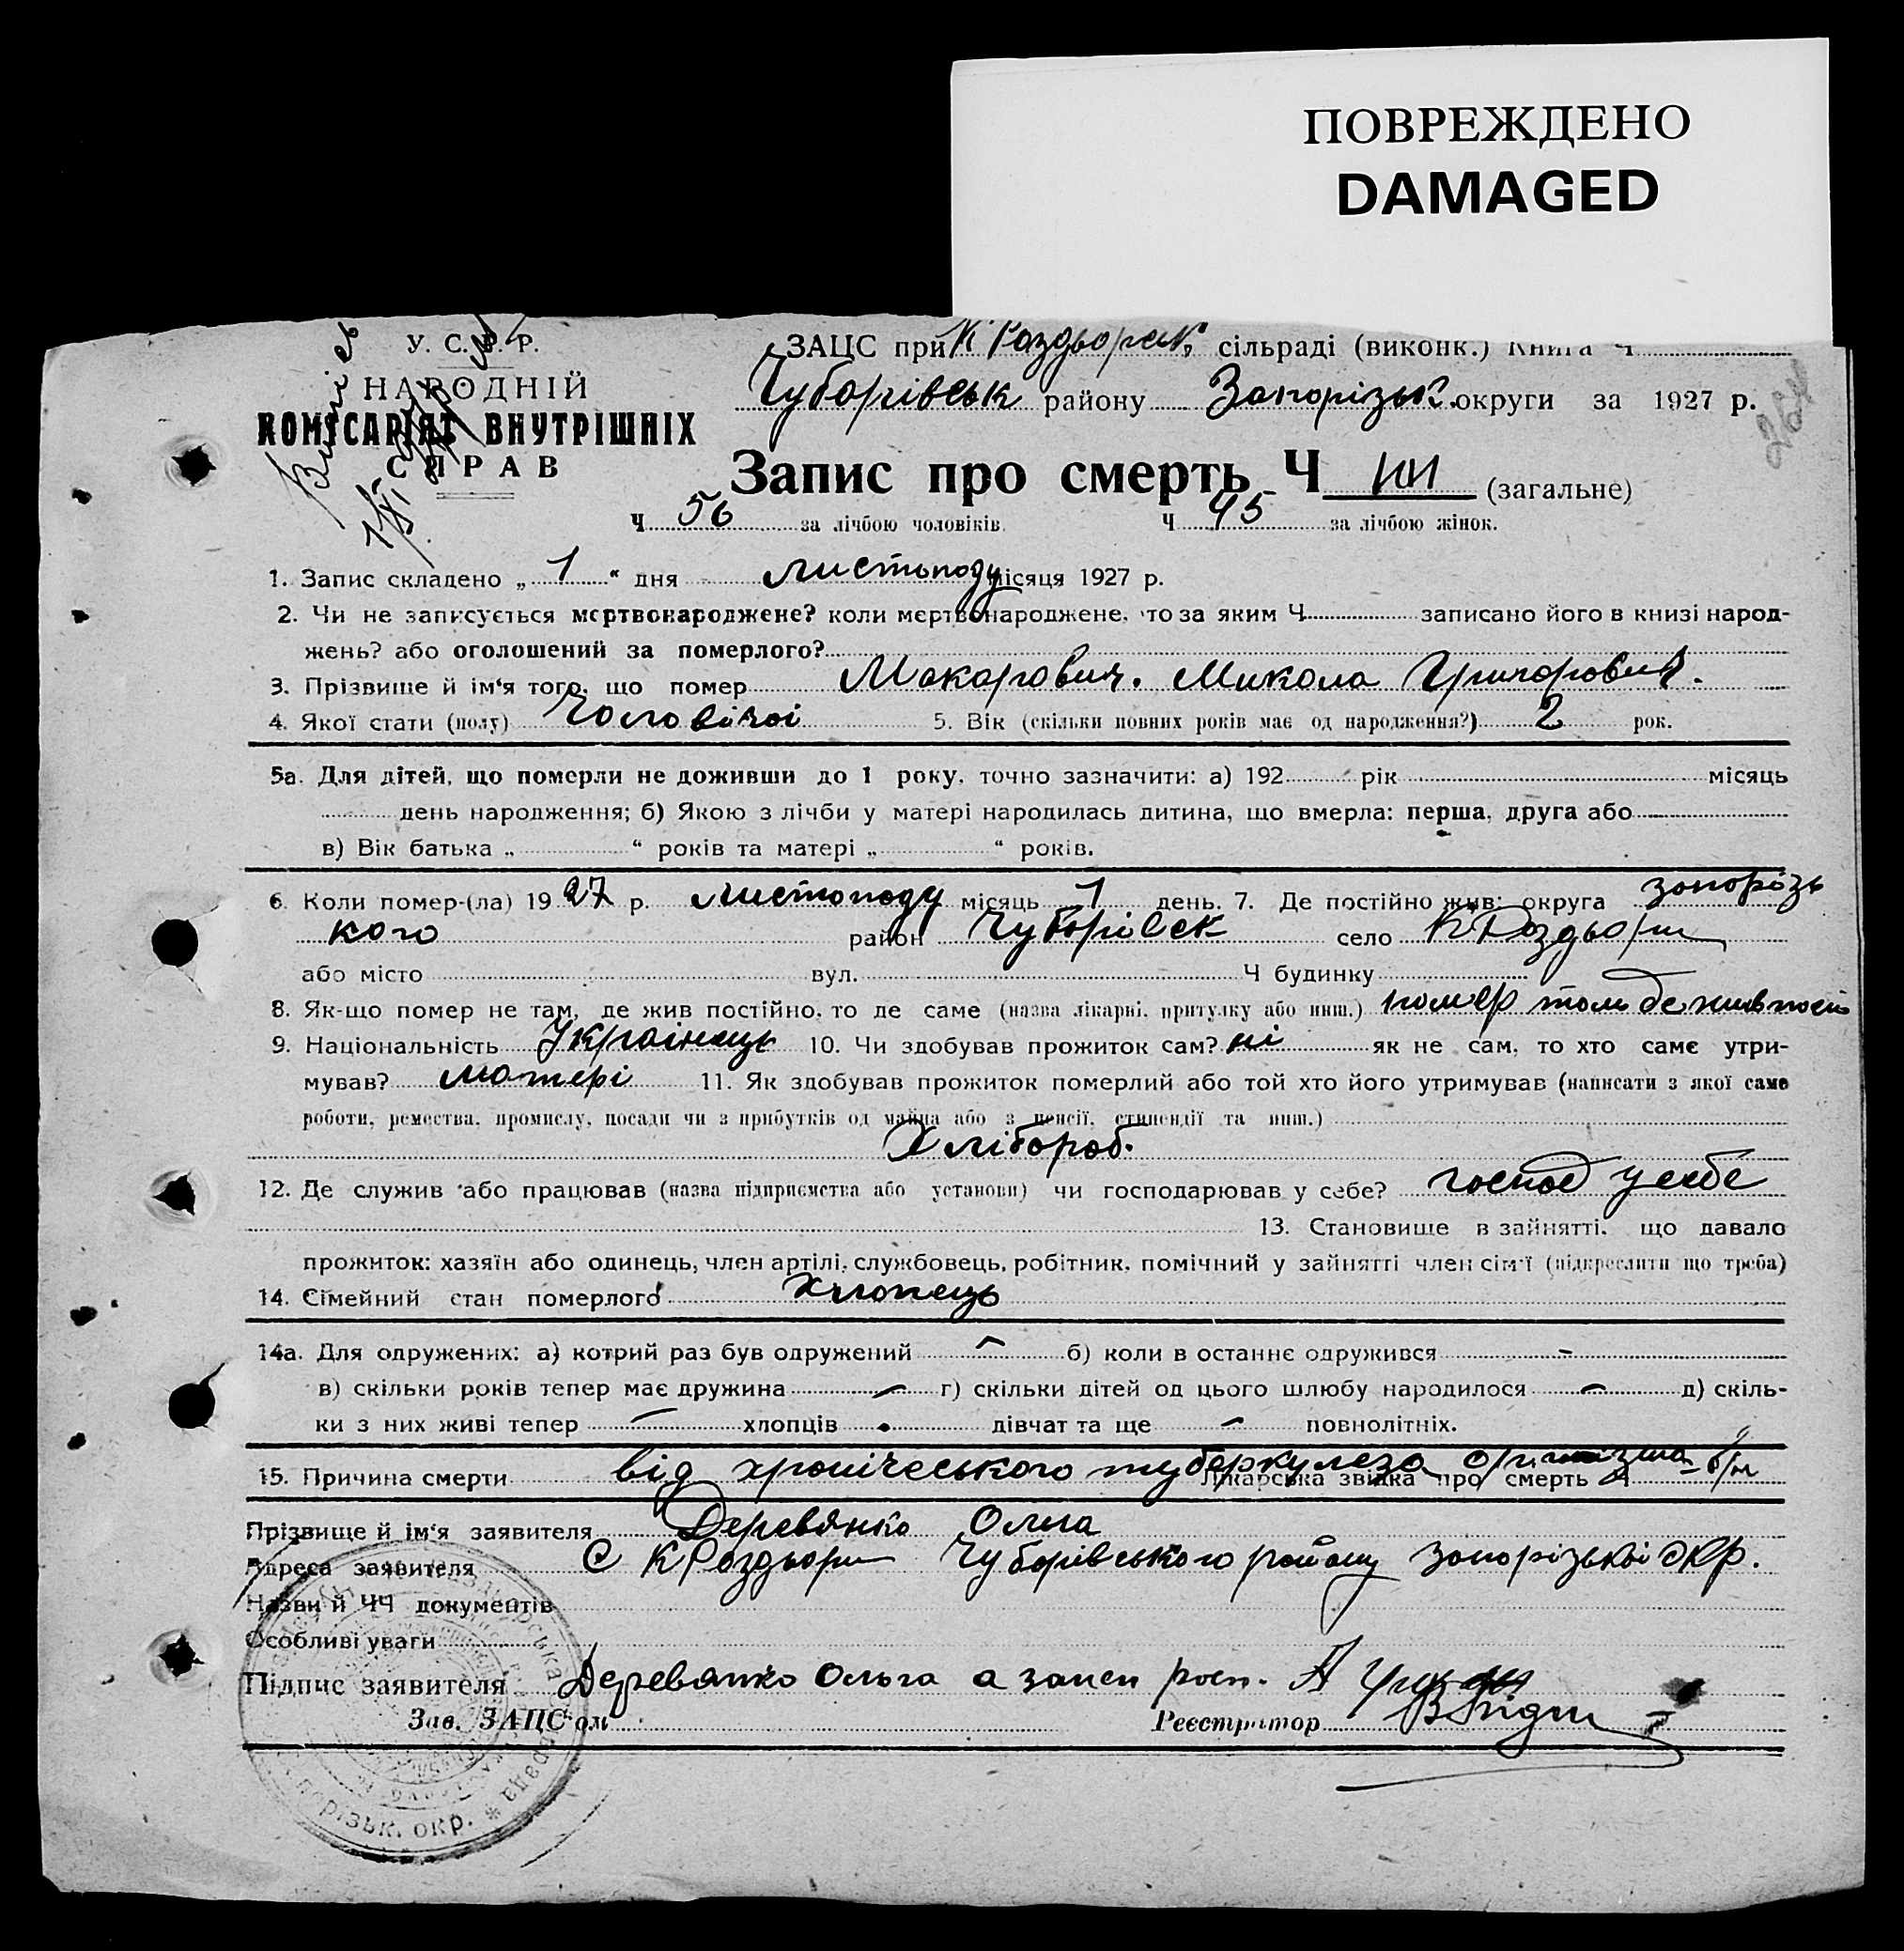 ПОВРЕЖДЕНО
DAMAGED
У. С. Р. Р.
НАРОДНІЙ
КОМІСАРІЯТ ВНУТРІШНІХ
СПРАВ
ЗАЦС при К Роздорськ. сільраді (виконк.) Книга Ч
Чубарівськ району Запорізьк. округи за 1927 р.
Запис про смерть Ч (загальне)
Ч 56 за лічбою чоловіків. Ч 45 за лічбою жінок.
1. Запис складено „ 1 “ дня листопаду місяця 1927 р.
2. Чи не записується мертвонароджене? коли мертвонароджене, то за яким Ч записано його в книзі народ-
жень? або оголошений за померлого?
3. Прізвище й ім'я того, що помер Макарович. Микола Григорович.
4. Якої стати (полу) Чоловічої 5. Вік (скільки повних років має од народження?) 2 рок.
5а. Для дітей, що померли не доживши до 1 року, точно зазначити: а) 192 рік місяць
день народження; б) Якою з лічби у матері народилась дитина, що вмерла: перша, друга або
в) Вік батька „ “ років та матері „ “ років.
6. Коли помер-(ла) 1927 р. листопаду місяць 1 день. 7. Де постійно жив: округа запорізь
кого район Чубарівск село К Роздьори
або місто вул. Ч будинку
8. Як-що помер не там, де жив постійно, то де саме (назва лікарні, притулку або инш.) помер там де жив пост
9. Національність Українець 10. Чи здобував прожиток сам? ні як не сам, то хто саме утри-
мував? матері 11. Як здобував прожиток померлий або той хто його утримував (написати з якої саме
роботи, ремества, промислу, посади чи з прибутків од майна або з пенсії, стипендії та инш.)
Хлібороб.
12. Де служив або працював (назва підприємства або установи) чи господарював у себе? господ у себе
13. Становище в зайнятті, що давало
прожиток: хазяїн або одинець, член артілі, службовець, робітник, помічний у зайнятті член сім'ї (підкреслити що треба)
14. Сімейний стан померлого Хлопець
14а. Для одружених: а) котрий раз був одружений - б) коли в останнє одружився -
в) скільки років тепер має дружина - г) скільки дітей од цього шлюбу народилося - д) скіль-
ки з них живі тепер - хлопців - дівчат та ще - повнолітніх.
15. Причина смерти від хронічеського туберкулеза Лікарська звідка про смерть Ч б/н
Прізвище й ім'я заявителя Деревянко Ольга
Адреса заявителя С К Роздьори Чубарівського району Запорізької окр.
Назви й ЧЧ документів
Особливі уваги
Підпис заявителя Деревянко Ольга
Зав. ЗАЦС'ом Реєстратор